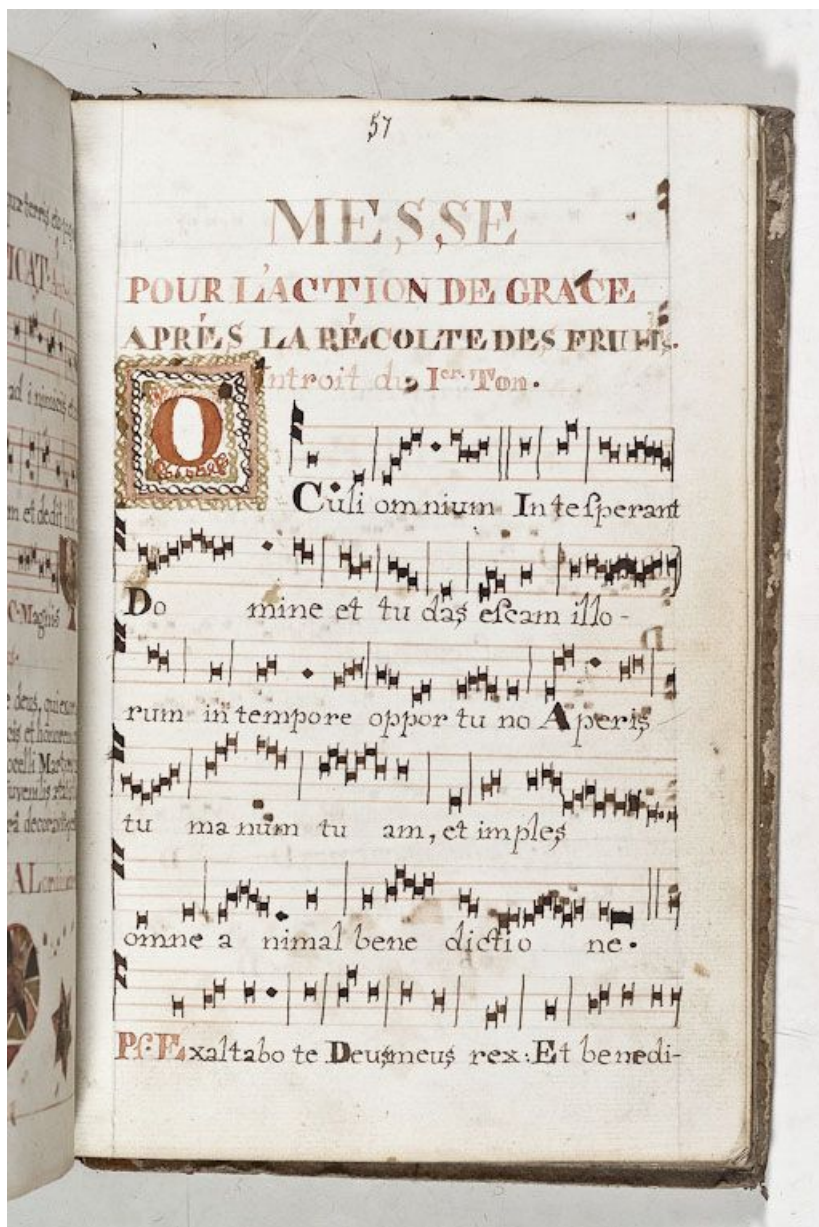 57
MESSE
POUR L'ACTION DE GRACE
APRÉS LA RÉCOLTE DES FRUITS.
Introit du Ier. Ton.
O
Culi omnium In te ſperant
Do mine et tu das eſcam illo-
rum in tempore oppor tu no Aperis
tu ma num tu am, et imples
omne a nimal bene dictio ne.
Pſ. Exaltabo te Deus meus rex: Et benedi-